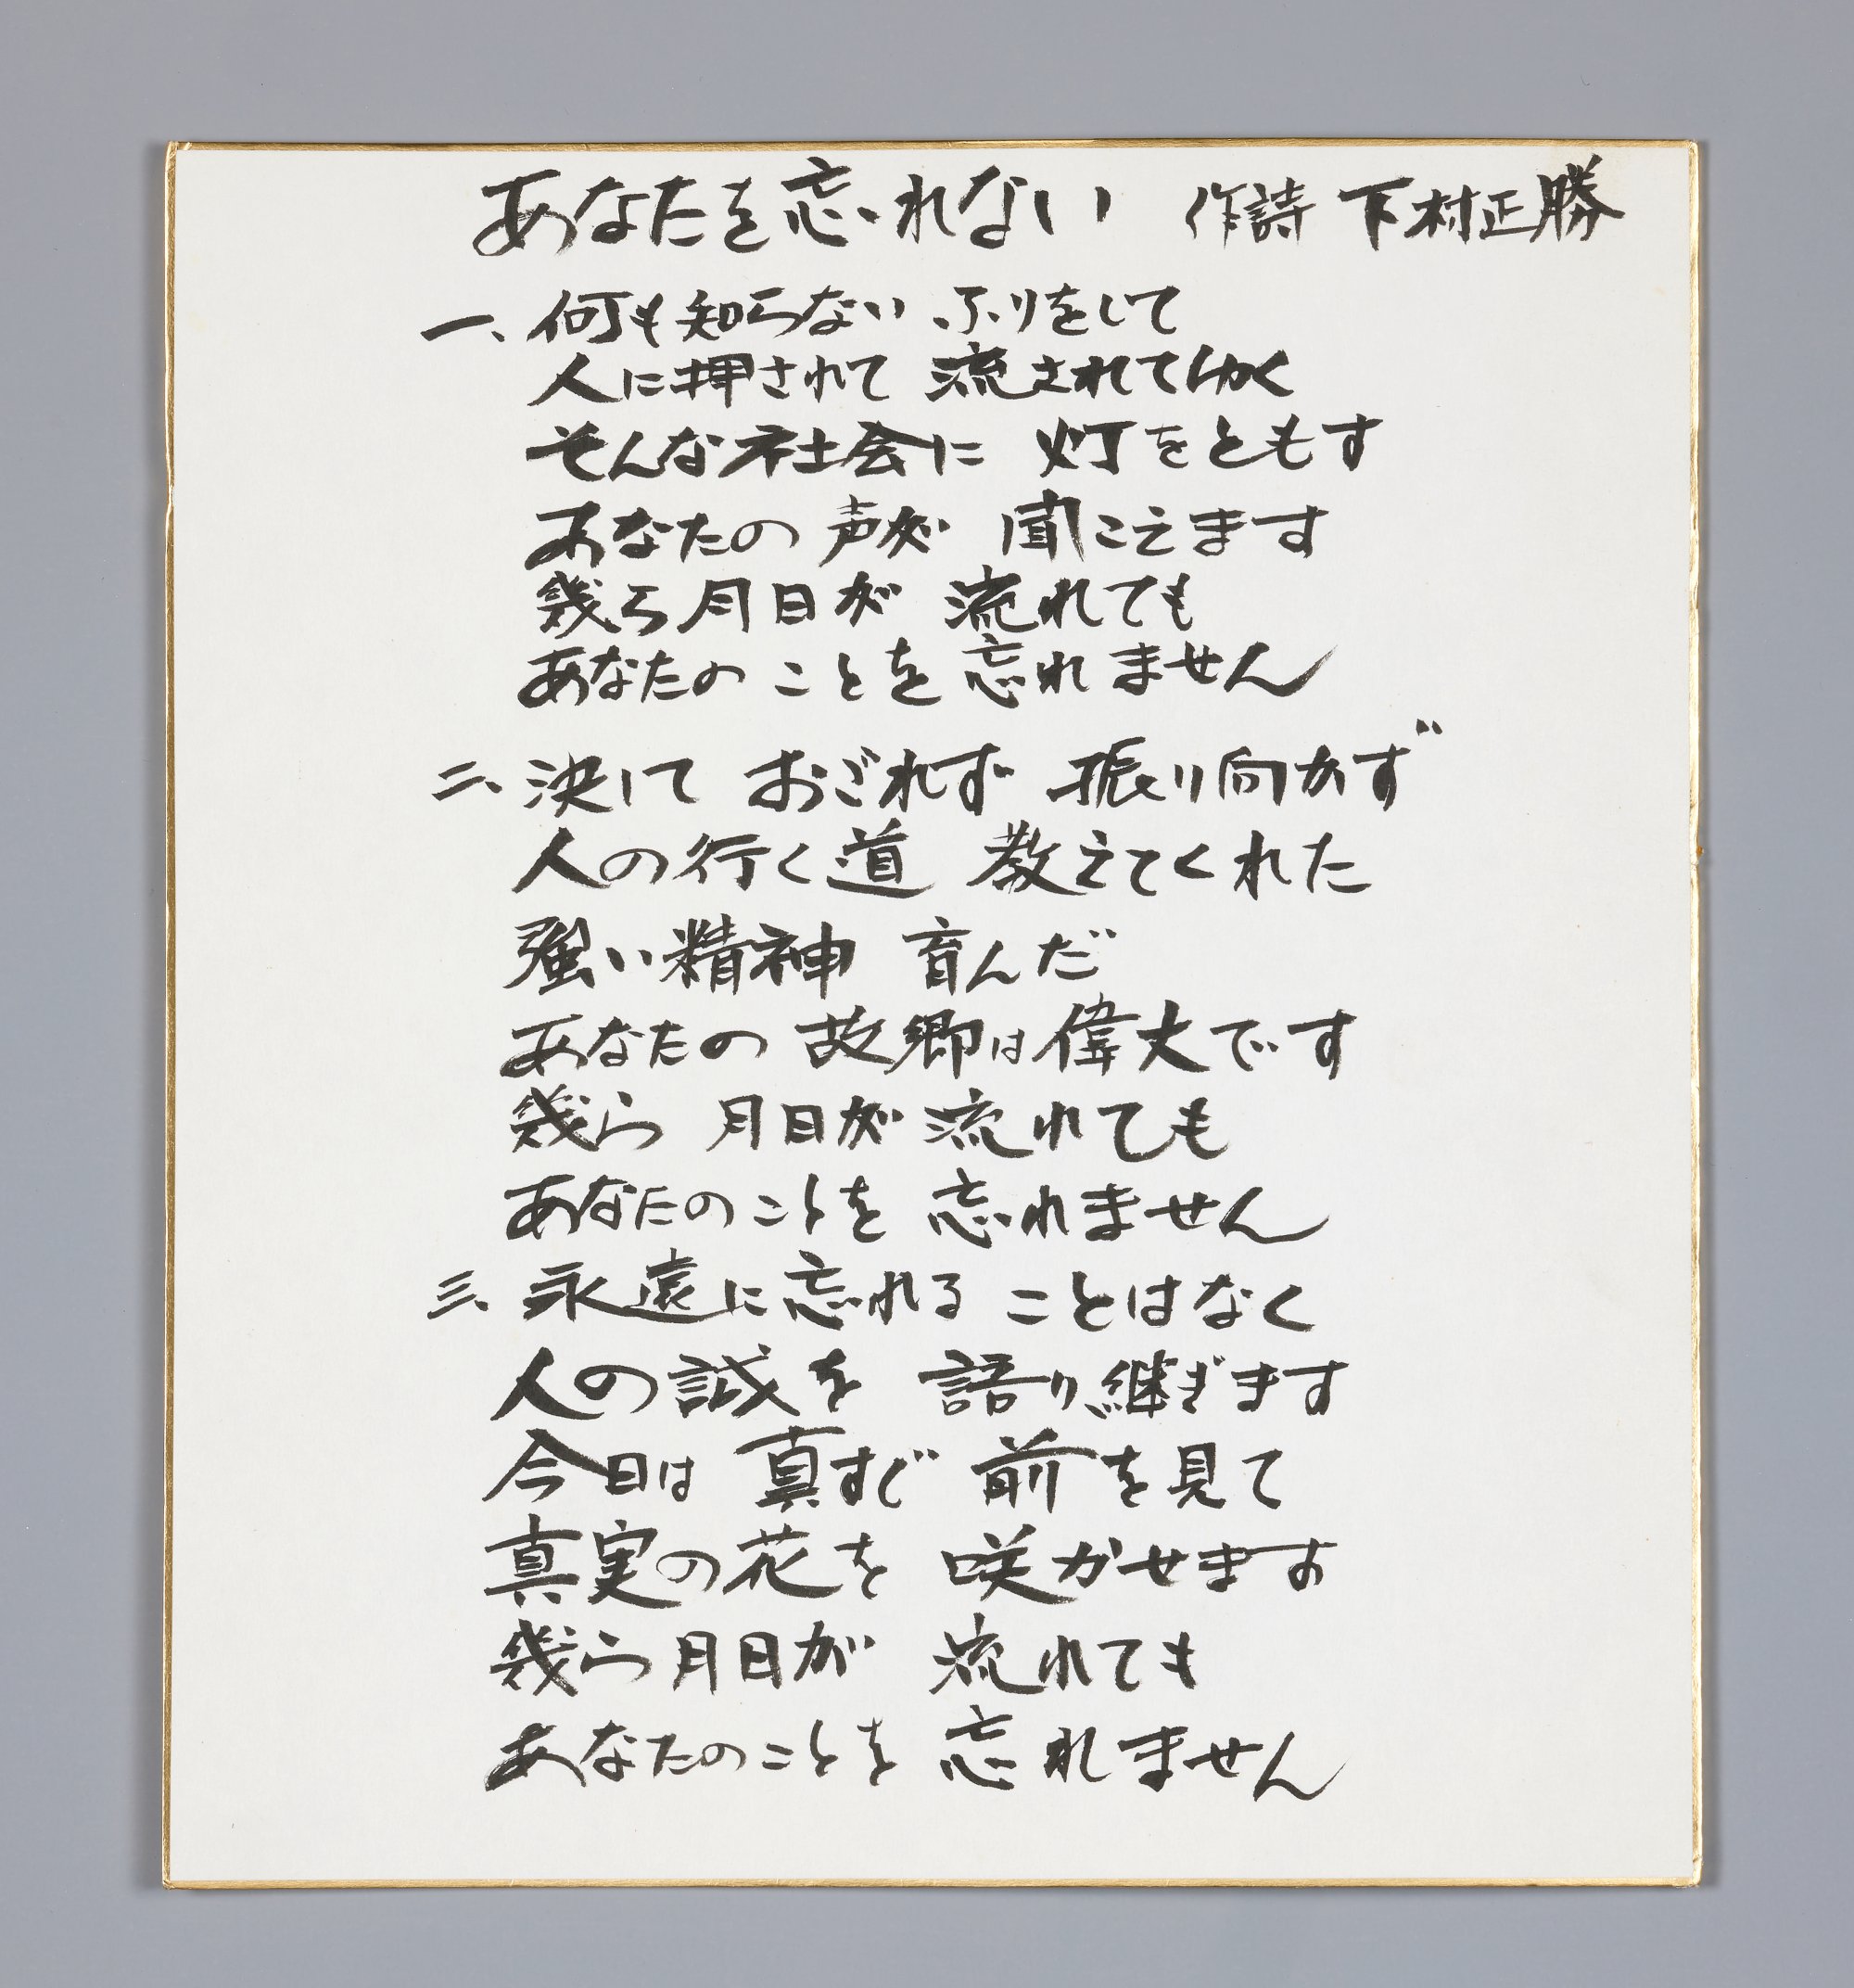 あなたを忘れない 作詩 下村正勝
一、何も知らない ふりをして
人に押されて 流されてゆく
そんな社会に 灯をともす
あなたの 声が 聞こえます
幾ら月日が 流れても
あなたの ことを 忘れません
二、決して おごれず 振り向かず
人の行く道 教えてくれた
強い精神 育んだ
あなたの 故郷は偉大です
幾ら 月日が 流れても
あなたのことを 忘れません
三、永遠に忘れる ことはなく
人の誠を 語り継ぎます
今日は 真すぐ 前を見て
真実の花を 咲かせます
幾ら月日が 流れても
あなたのことを 忘れません